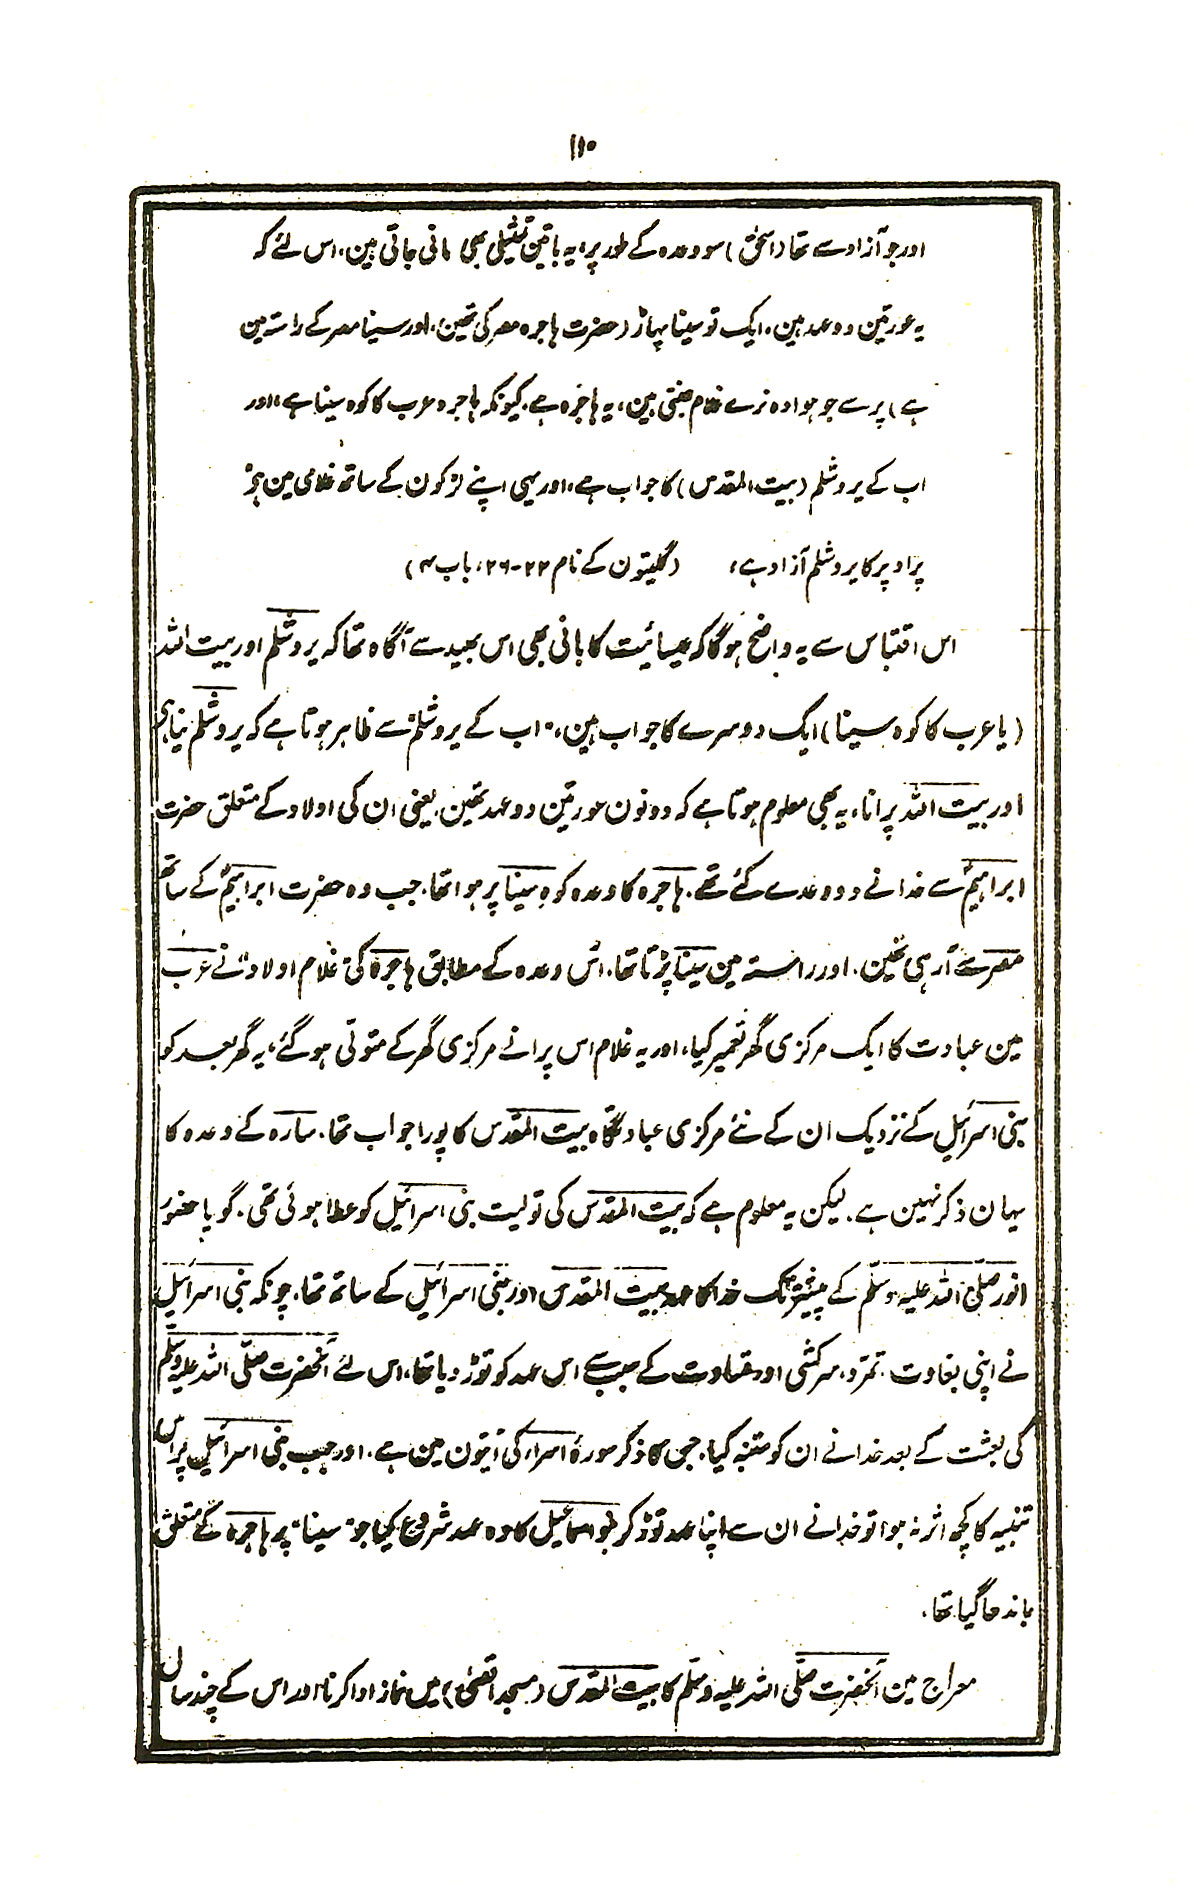 ۱۱۰
اور جو آزاد سے تھا (اسحٰق) سو وعدہ کے طور پر، یہ باتین تمثیلی بھی مانی جاتی ہین، اس لئے کہ
یہ عورتین دو عہد ہین، ایک تو سینا پہاڑ (حضرت ہاجرہ مصر کی تھین، اور سینا مصر کے راستہ مین
ہے) پر سے جو ہوا وہ نرے غلام جنتی ہین، یہ ہاجرہ ہے، کیونکہ ہاجرہ عرب کا کوہ سینا ہے، اور
اب کے یروشلم (بیت المقدس) کا جواب ہے، اور یہی اپنے لڑکون کے ساتھ غلامی مین ہے،
پر اوپر کا یروشلم آزاد ہے، (گلیتون کے نام ۲۲-۲۶، باب ۴)
اس اقتباس سے یہ واضح ہوگا کہ عیسائیت کا بانی بھی اس بھید سے آگاہ تھا کہ یروشلم اور بیت اللہ
(یا عرب کا کوہ سینا) ایک دوسرے کا جواب ہین، "اب کے یروشلم" سے ظاہر ہوتا ہے کہ یروشلم نیا ہے
اور بیت اللہ پرانا، یہ بھی معلوم ہوتا ہے کہ دونون عورتین دو عہد تھین، یعنی ان کی اولاد کے متعلق حضرت
ابراہیمؑ سے خدا نے دو وعدے کئے تھے، ہاجرہ کا وعدہ کوہِ سینا پر ہوا تھا، جب وہ حضرت ابراہیمؑ کے ساتھ
مصر سے آرہی تھین، اور راستہ مین سینا پڑتا تھا، اس وعدہ کے مطابق ہاجرہ کی "غلام اولاد" نے عرب
مین عبادت کا ایک مرکزی گھر تعمیر کیا، اور یہ غلام اس پرانے مرکزی گھر کے متولّی ہو گئے، یہ گھر بعد کو
بنی اسرائیل کے نزدیک ان کے نئے مرکزی عبادتگاہ بیت المقدس کا پورا جواب تھا، سارہ کے وعدہ کا
یہان ذکر نہین ہے، لیکن یہ معلوم ہے کہ بیت المقدس کی تولیت بنی اسرائیل کو عطا ہوئی تھی، گویا حضور
انور صلّی اللہ علیہ وسلّم کے پیشتر تک خدا کا عہد بیت المقدس اور بنی اسرائیل کے ساتھ تھا، چونکہ بنی اسرائیل
نے اپنی بغاوت، تمرّد، سرکشی اور قساوت کے سبب سے اس عہد کو توڑ دیا تھا، اس لئے آنحضرت صلّی اللہ علیہ وسلّم
کی بعثت کے بعد خدا نے ان کو متنبہ کیا، جس کا ذکر سورۂ اسراء کی آیتون مین ہے، اور جب بنی اسرائیل پر اس
تنبیہ کا کچھ اثر نہ ہوا تو خدا نے ان سے اپنا عہد توڑ کر بنو اسماعیل کا وہ عہد شروع کیا جو "سینا" پر ہاجرہ کے متعلق
باندھا گیا تھا،
معراج مین آنحضرت صلّی اللہ علیہ وسلّم کا بیت المقدس (مسجد اقصٰی) میں نماز ادا کرنا اور اس کے چند سال